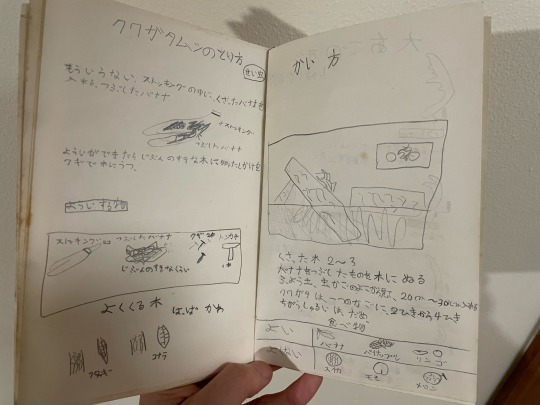 クワガタムシのとり方
せい虫
もういらない、ストッキングの中に、くさったバナナを
よする、つぶしたバナナ
ストッキング
つぶしたバナナ
ようぃができたらじぶんのすきな木に
クギで木にうつ。
よういする物
ストッキング つぶしたバナナ クギ2本 トンカチ
じぶんのすきなくらい
よくくる木 はっぱ かわ
クヌギ
コナラ
かい方
くさった木2〜3
バナナをつぶしたものを木にぬる
クワガタは、一つのかごに、2ひきから4ひき
ちがうしゅるいは、だめ
食べ物
よい バナナ パイナップル リンゴ
よくない スイカ モモ メロン